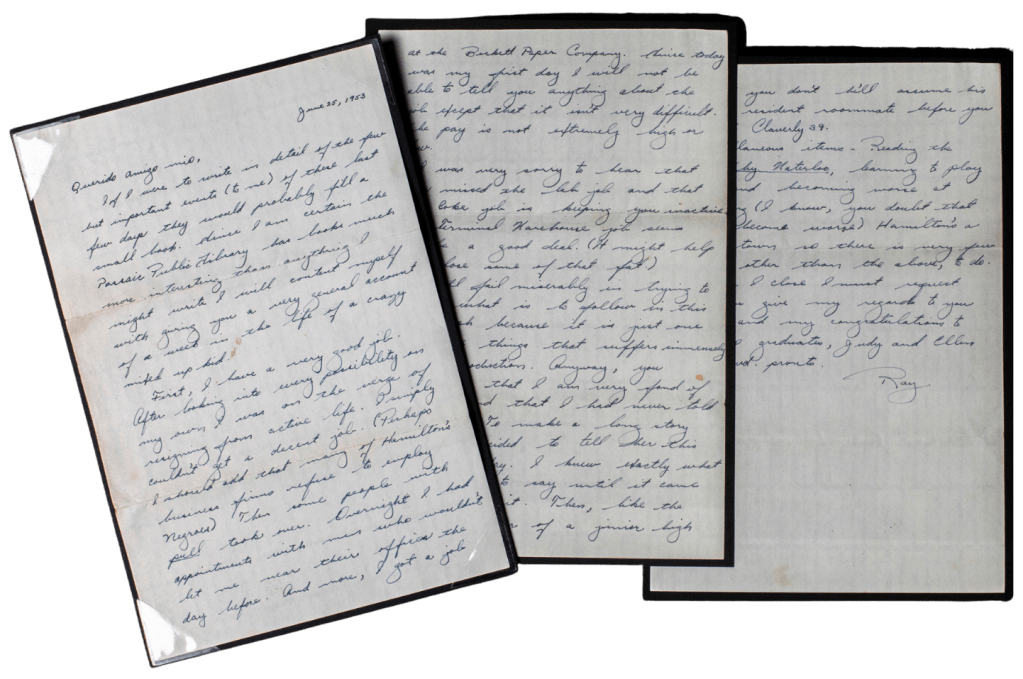 June 25, 1953
Querido amigo mio,
If I were to write in detail of the few
but important events (to me) of these last
few days they would probably fill a
small book. Since I am certain the
Passaic Public Library has books much
more interesting than anything I
might write I will content myself
with giving you a very general account
of a week in the life of a crazy
mixed up kid.
First, I have a very good job.
After looking into every possibility on
my own I was on the verge of
resigning from active life. I simply
couldn't get a decent job. (Perhaps
I should add that many of Hamilton's
business firms refuse to employ
Negroes) Then some people with
pull took over. Overnight I had
appointments with men who wouldn't
let me near their offices the
day before. And more, I got a job
at the Beckett Paper Company. Since today
was my first day I will not be
able to tell you anything about the
job except that it isn't very difficult.
The pay is not extremely high or
was very sorry to hear that
missed the job and that
Coke job is keeping you inactive
Terminal Warehouse job seems
be a good deal. (It might help
lose some of that fat)
fail miserably in trying to
what is to follow in this
because it is just one
things that suffers immensely
Anyway, you
that I am very fond of
that I had never told
To make a long story
decided to tell her this
I knew exactly what
to say until it came
it. Then, like the
of a junior high
you don't he'll assume his
resident roommate before you
Claverly 39.
items - Reading the
by Waterloo, learning to play
and becoming worse at
(I know, you doubt that
become worse) Hamilton's a
town so there is very few
other than the above, to do.
I close I must request
give my regards to your
and my congratulations to
graduates, Judy and Ellen
pronto.
Ray